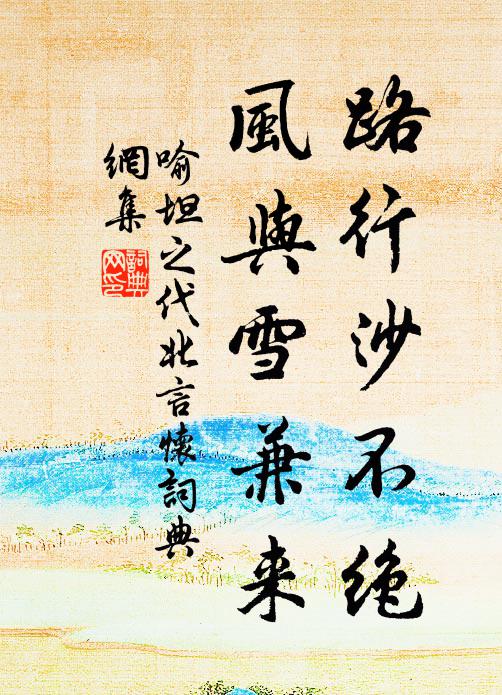 路行沙不絶
風與雪兼来
喻坦之代北言懷詞典
網集
詞典
网印